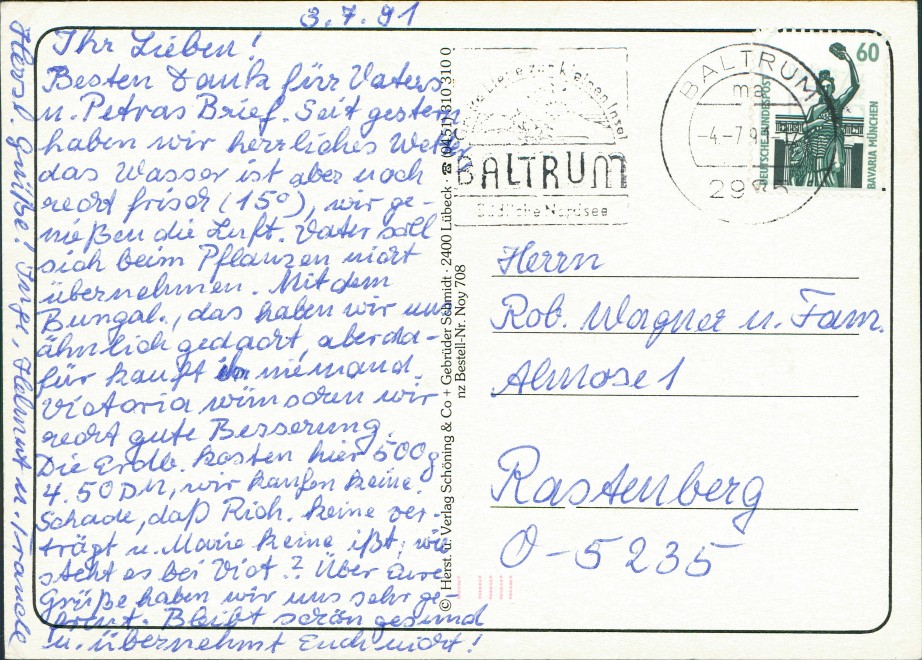 3.7.91
Ihr Lieben!
Besten Dank für Vaters
u. Petras Brief. Seit gestern
haben wir herrliches Wetter
das Wasser ist aber noch
recht frisch (15°), wir ge-
nießen die Luft. Vater soll
sich beim Pflanzen nicht
übernehmen. Mit dem
Bungal., das haben wir uns
ähnlich gedacht, aber da-
für kauft ihn niemand.
Victoria wünschen wir
recht gute Besserung.
Die Erdb. kosten hier 500g
4.50 DM, wir kaufen keine.
Schade, daß Rich. keine ver-
trägt u. Marie keine ißt, wie
steht es bei Vict.? Über Eure
Grüße haben wir uns sehr ge-
freut. Bleibt schön gesund
u. übernehmt Euch nicht!
Herzl. Grüße! Inge, Helmut u.
© Herst. u. Verlag Schöning & Co + Gebrüder Schmidt · 2400 Lübeck · ☎ (0451) 310 310
nz Bestell-Nr. Noy 708
zur kleinen Insel
BALTRUM
Südliche Nordsee
BALTRUM
ma
-4.-7.9
60
DEUTSCHE BUNDESPOST
BAVARIA MÜNCHEN
Herrn
Rob. Wagner u. Fam.
Almose 1
Rastenberg
O-5235